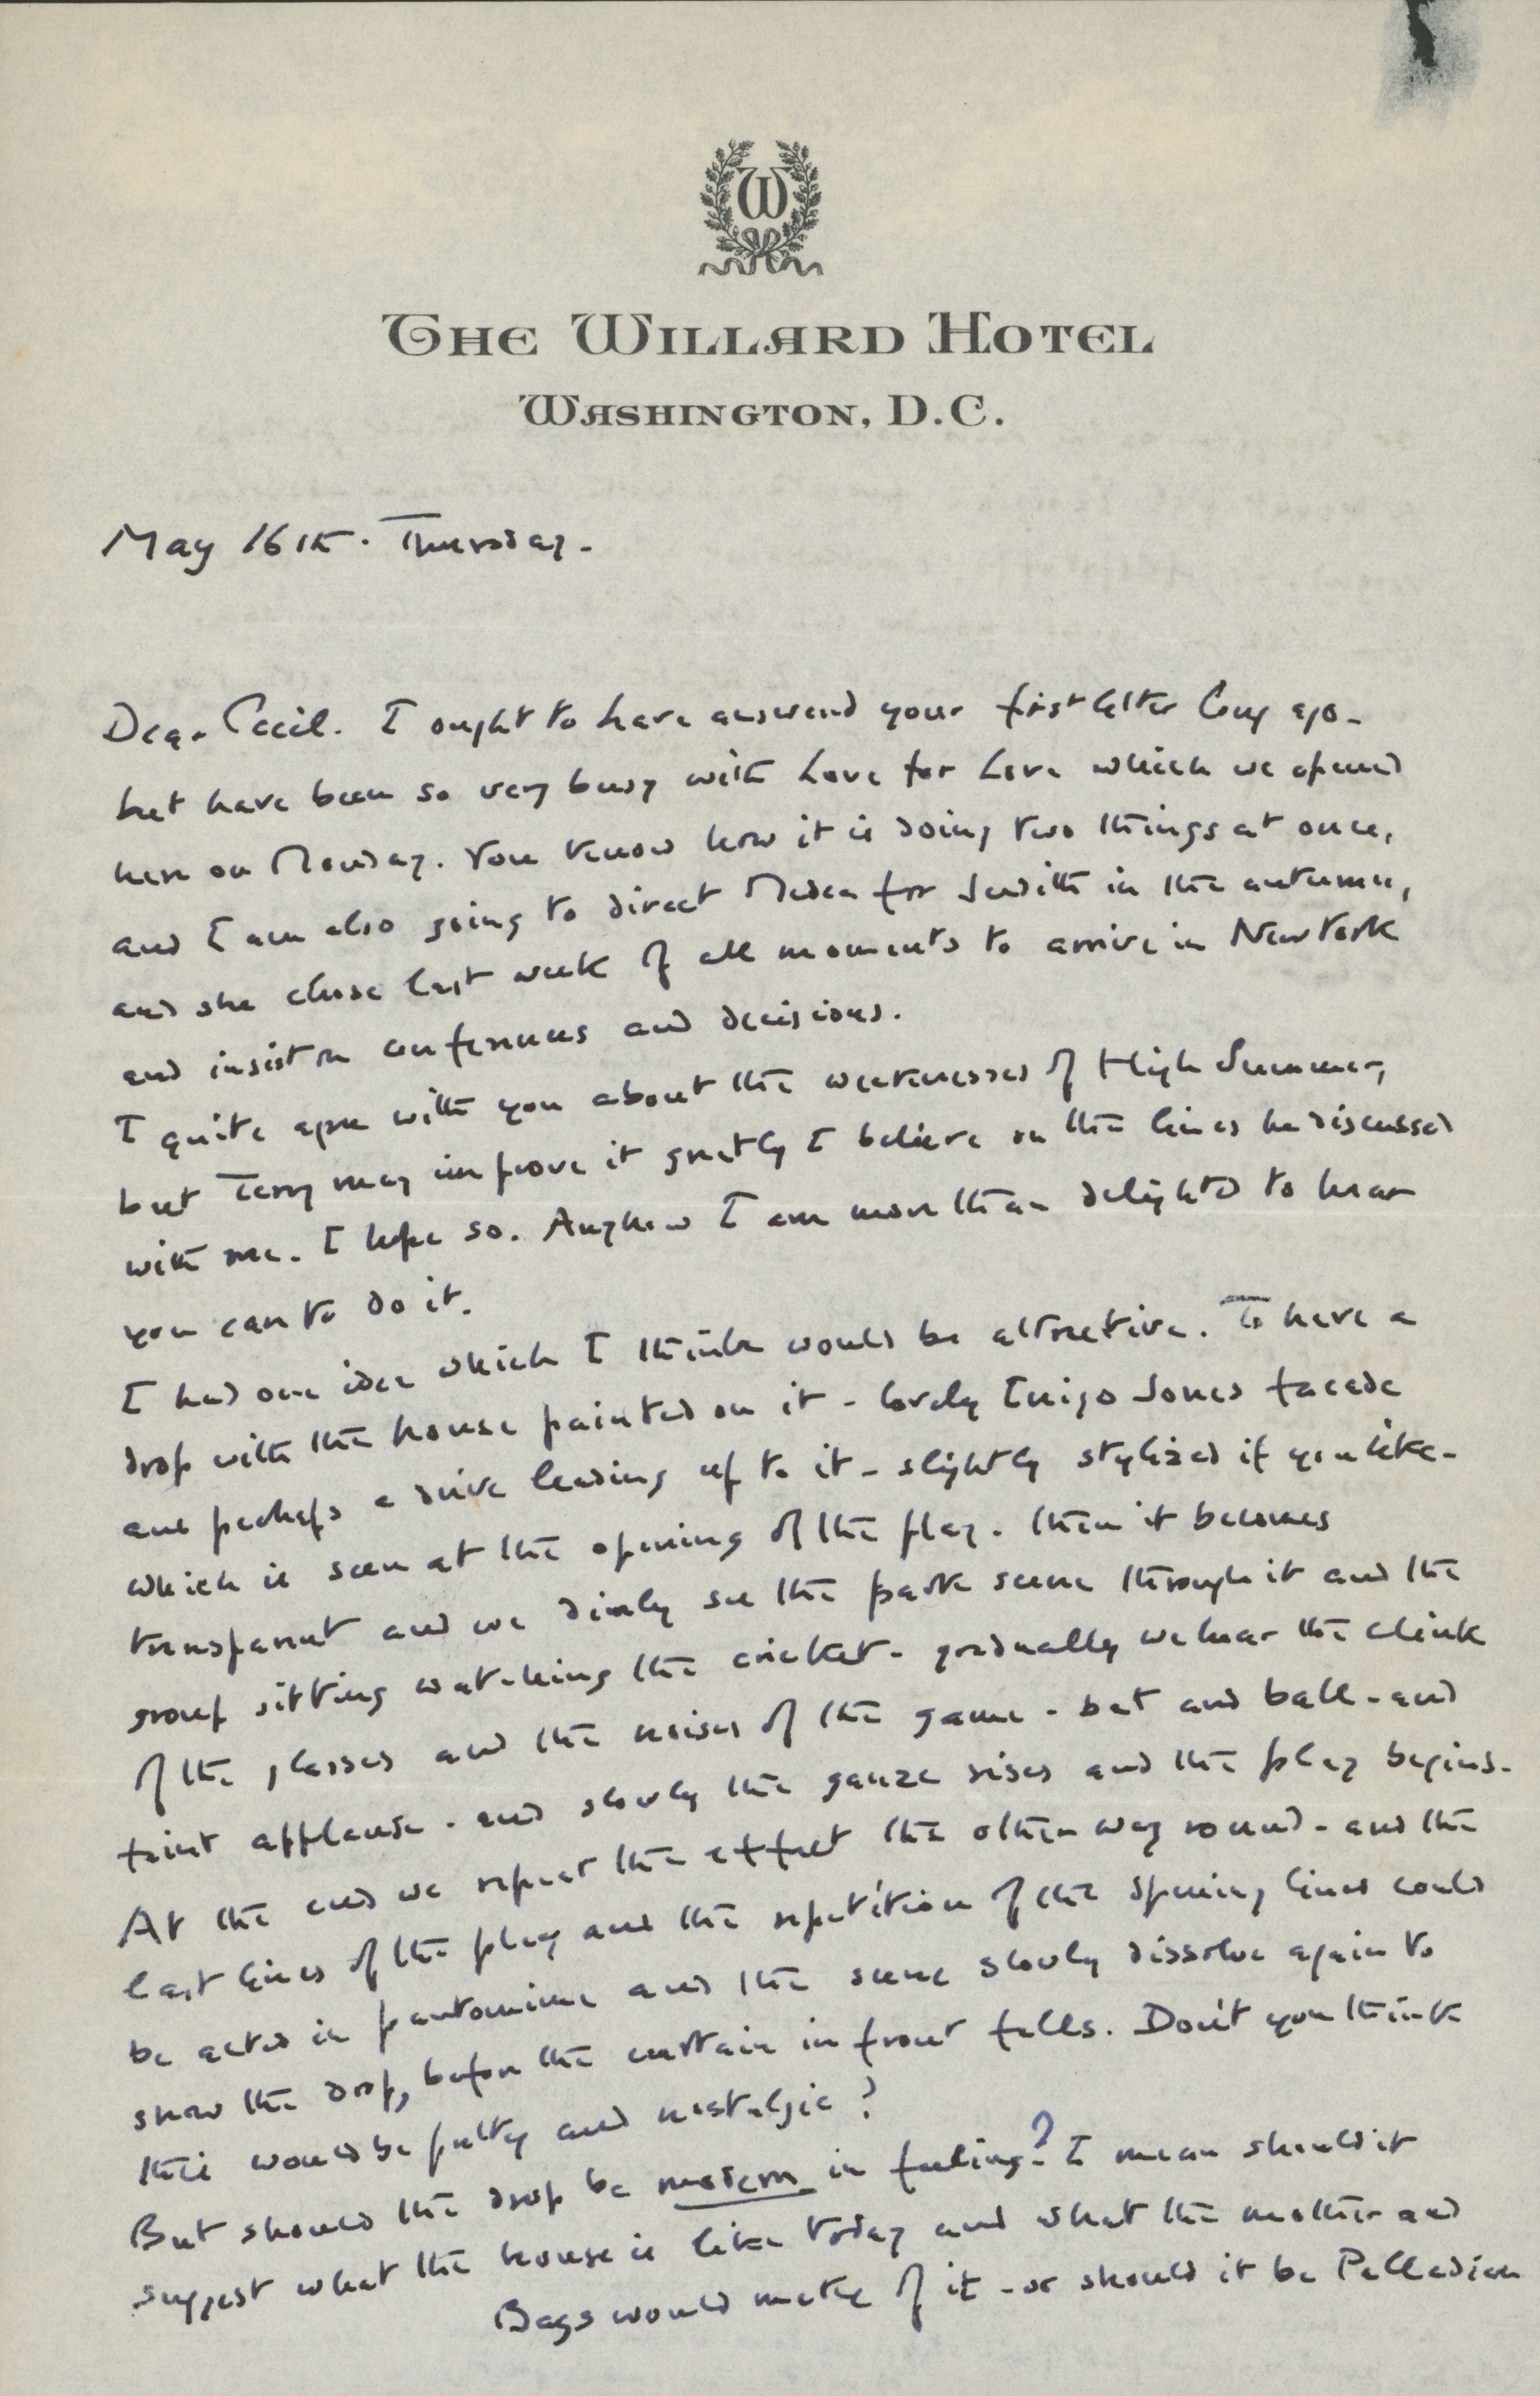 W
THE WILLARD HOTEL
WASHINGTON, D.C.
May 16th. Thursday.
Dear Cecil. I ought to have answered your first letter long ago -
but have been so very busy with Love for Love which we opened
here on Monday. You know how it is doing two things at once,
and I am also going to direct Medea for Judith in the autumn,
and she chose last week of all moments to arrive in New York
and insist on conferences and decisions.
I quite agree with you about the weaknesses of High Summer,
but Terry may improve it greatly I believe on the lines he discussed
with me. I hope so. Anyhow I am more than delighted to hear
you can to do it.
I had one idea which I think would be attractive. To have a
drop with the house painted on it - lovely Inigo Jones facade
and perhaps a drive leading up to it - slightly stylized if you like -
which is seen at the opening of the play. Then it becomes
transparent and we dimly see the park scene through it and the
group sitting watching the cricket - gradually we hear the clink
of the glasses and the noises of the game - bat and ball - and
faint applause - and slowly the gauze rises and the play begins -
At the end we repeat the effect the other way round - and the
last lines of the play and the repetition of the opening lines could
be acted in pantomime and the scene slowly dissolve again to
show the drop, before the curtain in front falls. Don't you think
this would be pretty and nostalgic?
But should the drop be modern in feeling? I mean should it
suggest what the house is like today and what the mother and
Bags would make of it - or should it be Palladian